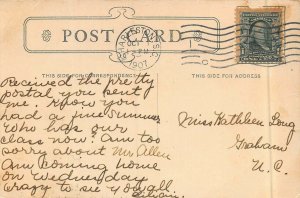 POST CARD
CHARLESTON, S.C.
OCT
1907
THIS SIDE FOR CORRESPONDENCE
THIS SIDE IS FOR
Received the pretty
postal you sent
me. Know you
had a fine summer
Who has our
class now? Am too
sorry about Mr. Allen
Am coming home
on Wednesday
Crazy to see you all.
Miss Kathleen Long
Graham
N. C.